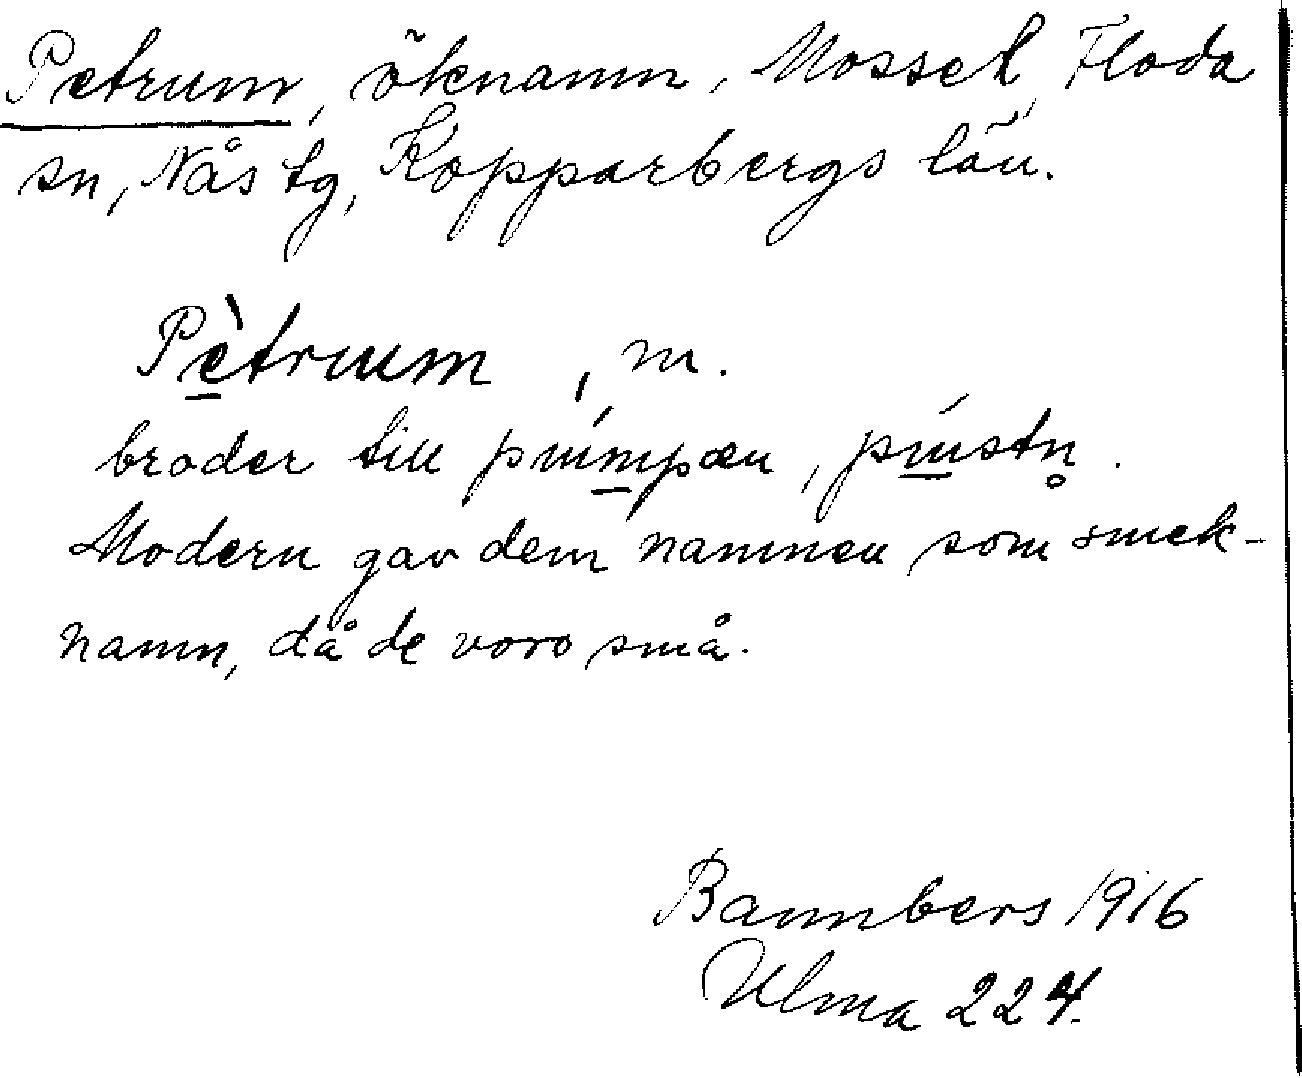 Petrum, öknamn, Mossel, Floda
sn, Nås tg, Kopparbergs län.
Pètrum, m.
broder till púmpæn, pústn̥.
Modern gav dem namnen som smek-
namn, då de voro små.
Bannbers 1916
Ulma 224.